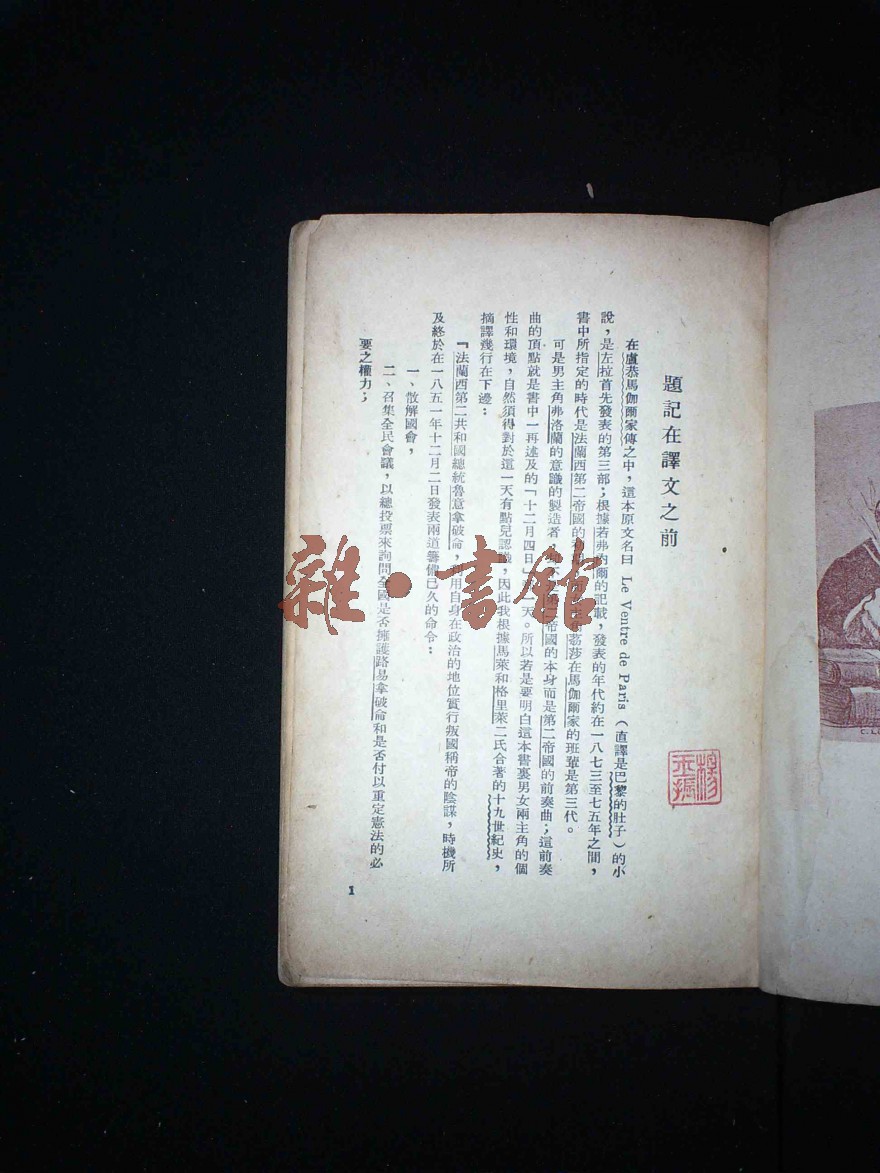 題記在譯文之前
在盧恭馬伽爾家傳之中，這本原文名曰 Le Ventre de Paris（直譯是巴黎的肚子）的小
說，是左拉首先發表的第三部；根據若弗內爾的記載，發表的年代約在一八七三至七五年之間，
書中所指定的時代是法蘭西第二帝國的 荔莎在馬伽爾家的班輩是第三代。
可是男主角弗洛蘭的意識的製造者 帝國的本身而是第二帝國的前奏曲；這前奏
曲的頂點就是書中一再述及的「十二月四日」 天。所以若是要明白這本書裏男女兩主角的個
性和環境，自然須得對於這一天有點兒認識，因此我根據馬萊和格里萊二氏合著的十九世紀史，
摘譯幾行在下邊：
『法蘭西第二共和國總統魯意拿破崙，利用自身在政治的地位實行叛國稱帝的陰謀，時機所
及終於在一八五一年十二月二日發表兩道籌備已久的命令：
一、散解國會，
二、召集全民會議，以總投票來詢問全國是否擁護路易拿破崙和是否付以重定憲法的必
要之權力；
1
雜·書館